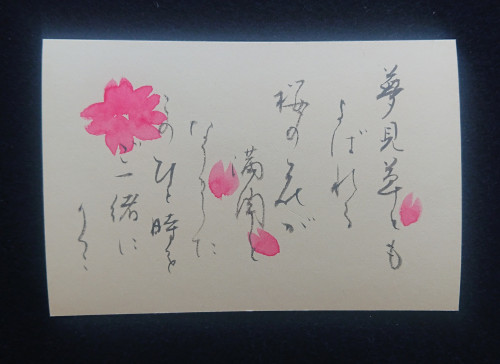 夢見草とも
よばれる
桜の花が
満開と
なりました
このひと時を
ご一緒に